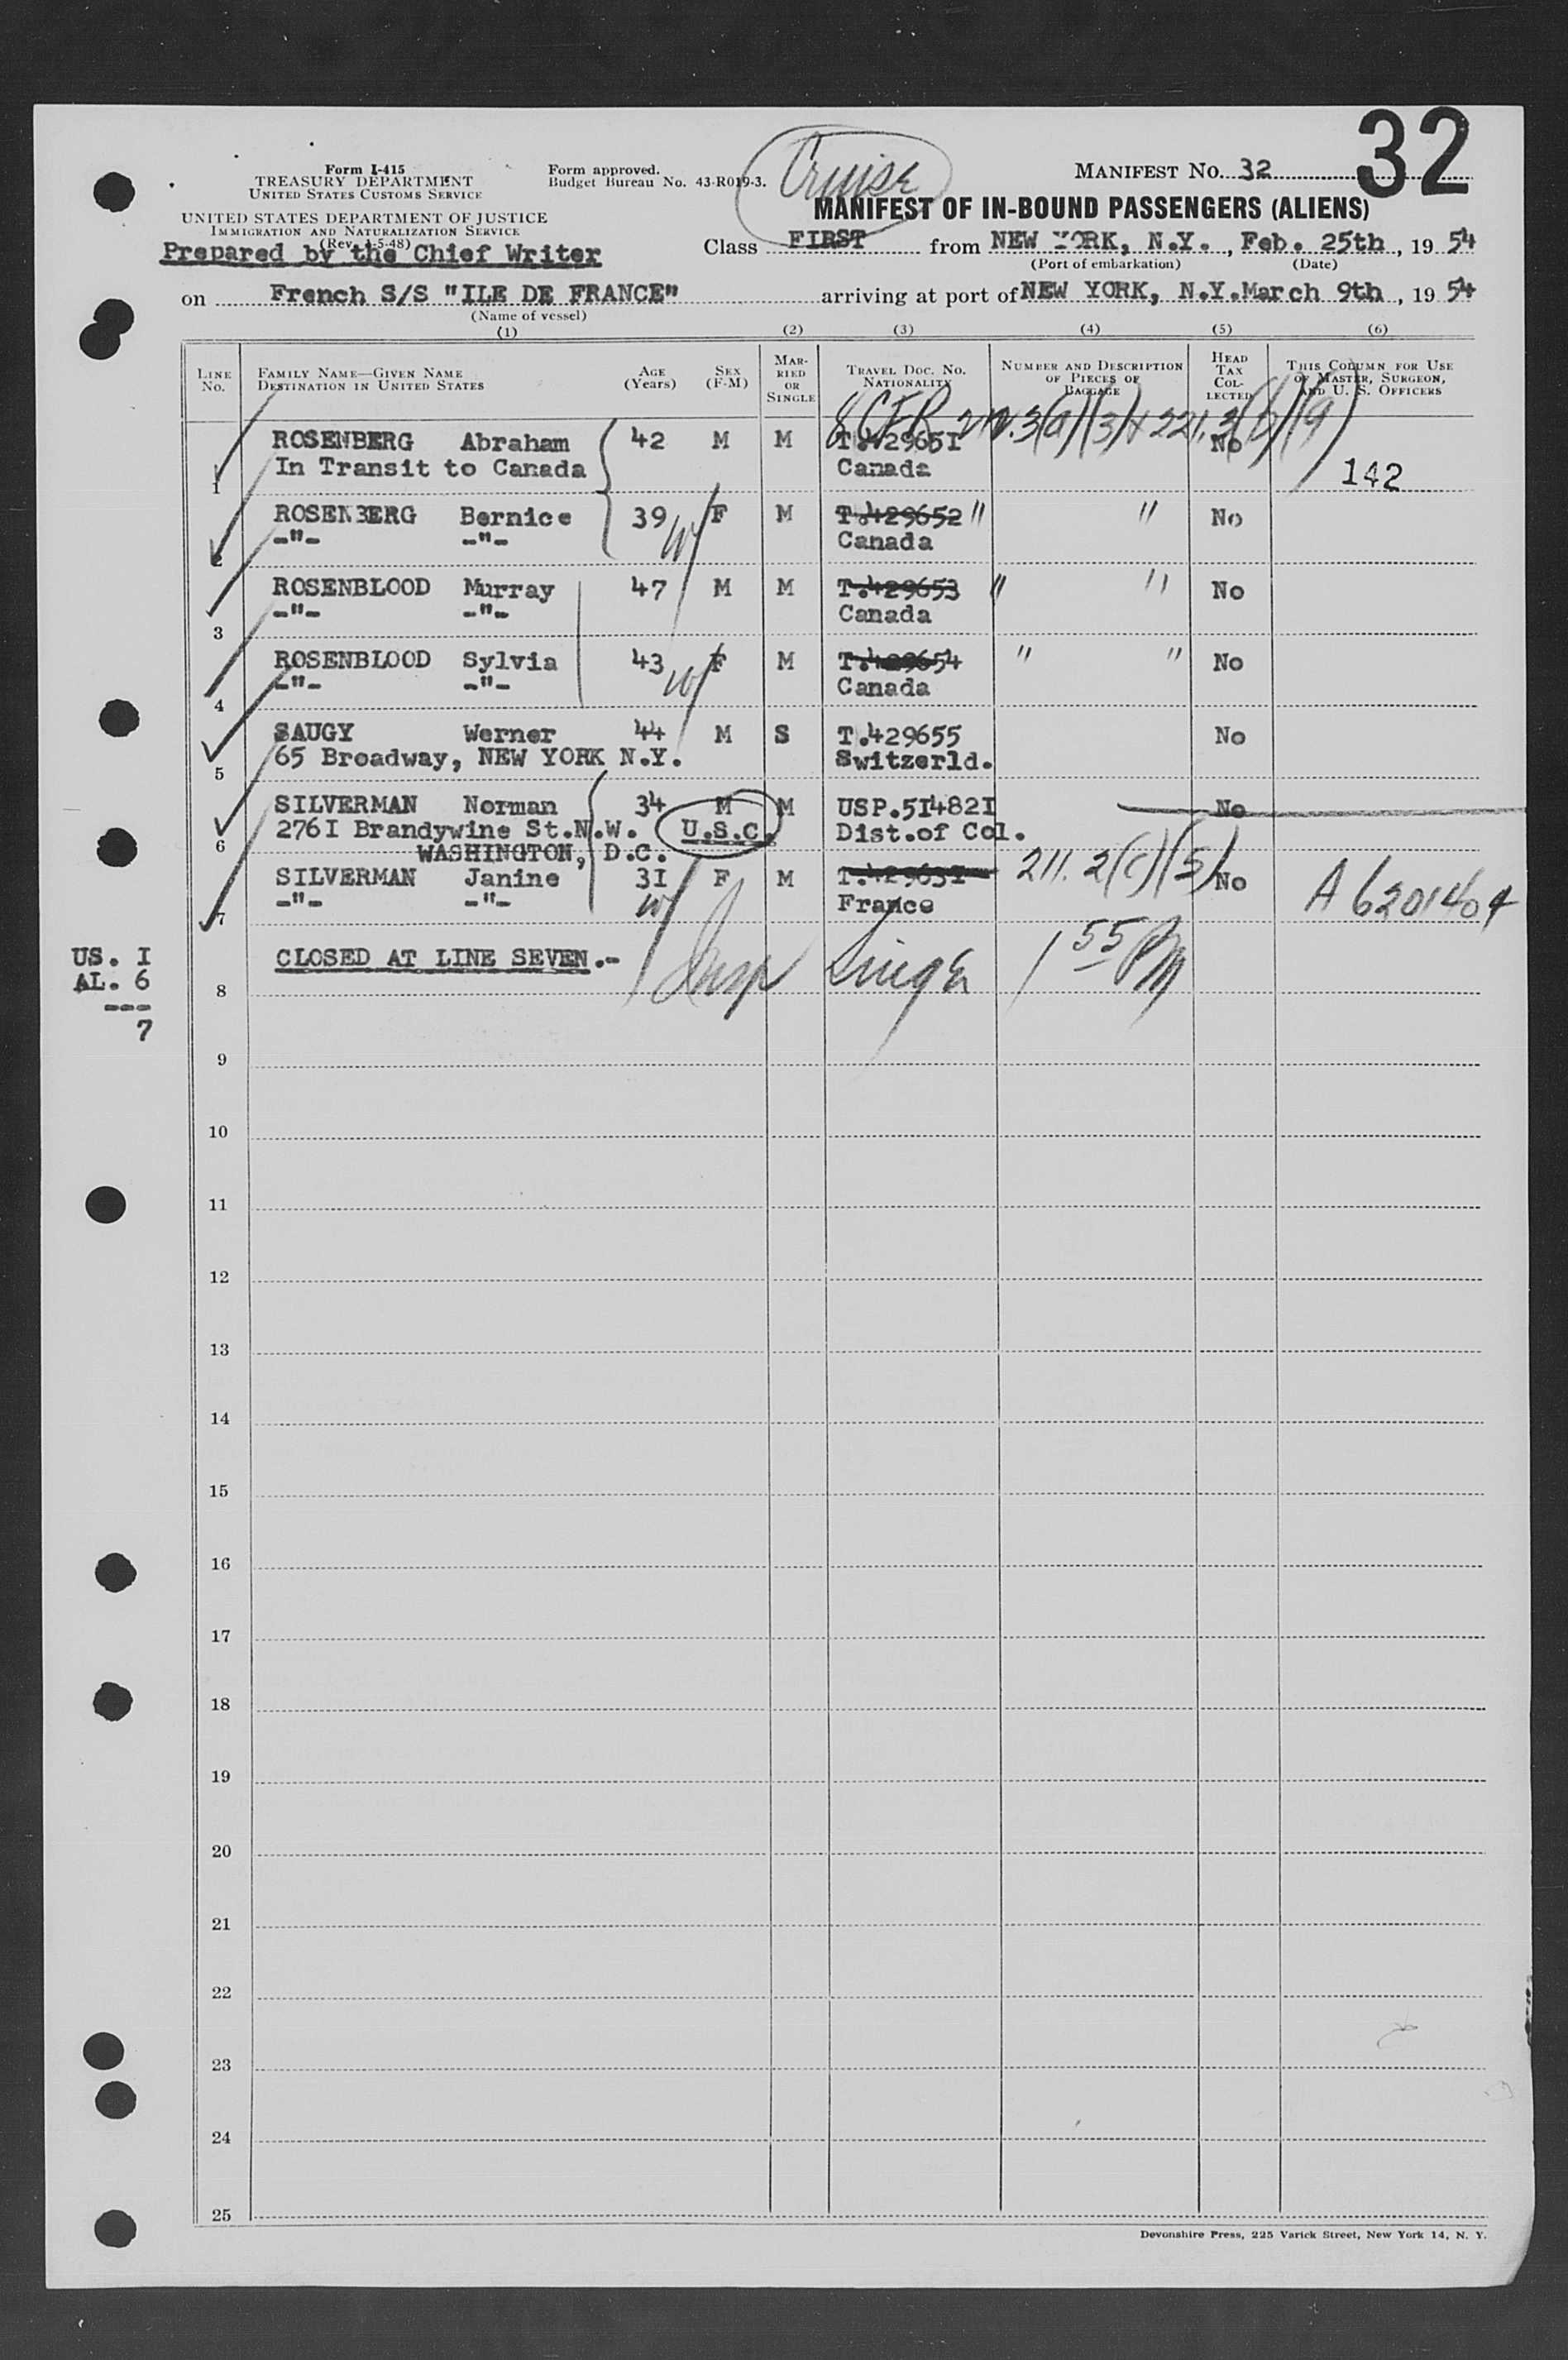 32
Form I-415
TREASURY DEPARTMENT
UNITED STATES CUSTOMS SERVICE
Form approved.
Budget Bureau No. 43-R019-3.
Cruise
MANIFEST NO. 32
UNITED STATES DEPARTMENT OF JUSTICE
IMMIGRATION AND NATURALIZATION SERVICE
(Rev. 4-5-48)
Prepared by the Chief Writer
MANIFEST OF IN-BOUND PASSENGERS (ALIENS)
Class FIRST from NEW YORK, N.Y., Feb. 25th, 19 54
(Port of embarkation) (Date)
on French S/S "ILE DE FRANCE" arriving at port of NEW YORK, N.Y. March 9th, 19 54
(Name of vessel)
(1) (2) (3) (4) (5) (6)
LINE NO.
FAMILY NAME—GIVEN NAME
DESTINATION IN UNITED STATES
AGE (Years)
SEX (F-M)
MARRIED OR SINGLE
TRAVEL DOC. NO. NATIONALITY
NUMBER AND DESCRIPTION OF PIECES OF BAGGAGE
HEAD TAX COLLECTED
THIS COLUMN FOR USE OF MASTER, SURGEON, AND U. S. OFFICERS
8 CFR .3(a)(3) + 221.3(b)(9)
ROSENBERG Abraham 42 M M T.429651 No
1 In Transit to Canada Canada 142
ROSENBERG Bernice 39 W F M T.429652 " " No
2 -"- -"- Canada
ROSENBLOOD Murray 47 M M T.429653 " " No
-"- -"- Canada
3
ROSENBLOOD Sylvia 43 W F M T.429654 " " No
-"- -"- Canada
4
SAUGY Werner 44 M S T.429655 No
65 Broadway, NEW YORK N.Y. Switzerld.
5
SILVERMAN Norman 34 M M USP.514821 No
276I Brandywine St.N.W. U.S.C. Dist.of Col.
6 WASHINGTON, D.C.
SILVERMAN Janine 3I F M 211.2(c)(5) No
7 -"- -"- W France A6201404
US. I
AL. 6
---
7
CLOSED AT LINE SEVEN.- Insp 1 55 PM
8
9
10
11
12
13
14
15
16
17
18
19
20
21
22
23
24
25
Devonshire Press, 225 Varick Street, New York 14, N. Y.